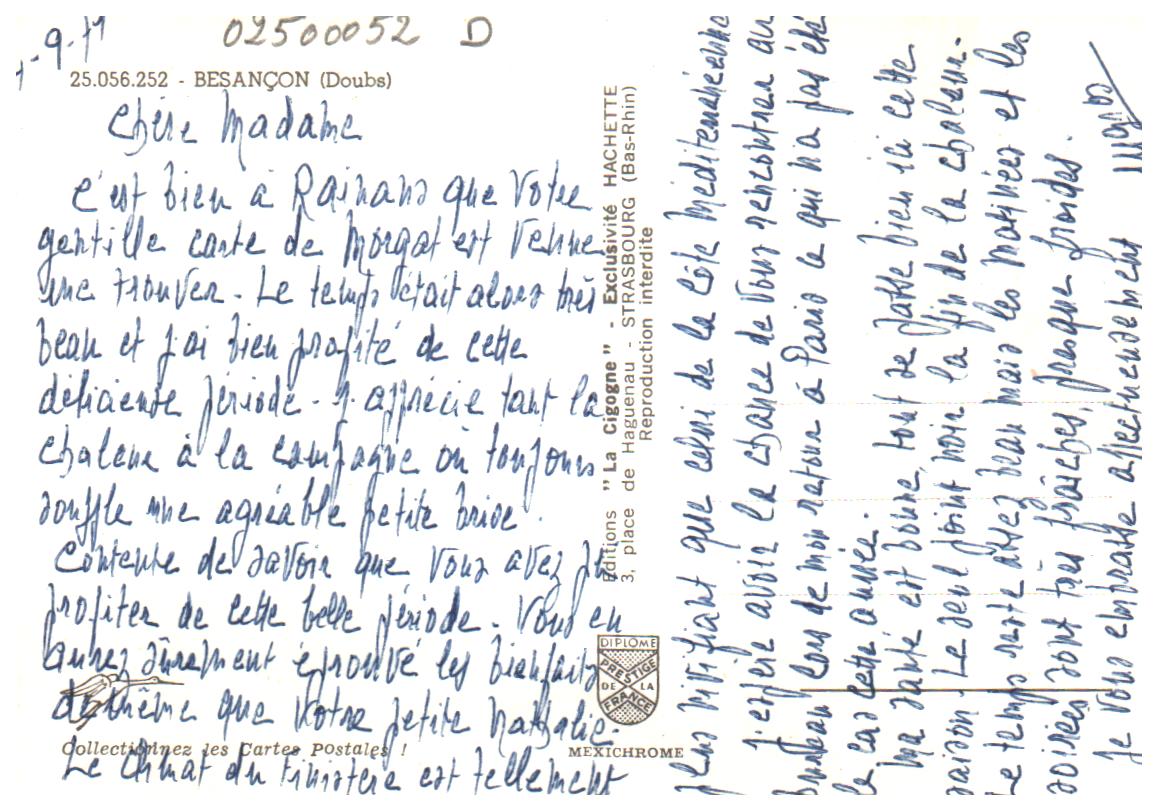 -9-71
02500052 D
25.056.252 - BESANÇON (Doubs)
Chère Madame
C'est bien à Rainans que votre
gentille carte de Morgat est venue
me trouver. Le temps était alors très
beau et j'ai bien profité de cette
déliciente période. J'apprécie tant la
chaleur à la campagne où toujours
souffle une agréable petite brise.
Contente de savoir que vous avez pu
profiter de cette belle période. Vous en
aurez sûrement éprouvé les bienfaits
de même que votre petite Nathalie.
Collectionnez les Cartes Postales !
Le climat du Finistère est tellement
Editions "La Cigogne" - Exclusivité HACHETTE
3, place de Haguenau - STRASBOURG (Bas-Rhin)
Reproduction interdite
DIPLÔME
PRESTIGE
DE LA
FRANCE
MEXICHROME
plus vivifiant que celui de la côte méditerranéenne
J'espère avoir la chance de vous rencontrer au
bureau lors de mon retour à Paris ce qui n'a pas été
le cas cette année.
Ma santé est bonne, tout se passe bien ici cette
saison. Le seul point noir la fin de la chaleur.
Le temps reste assez beau mais les matinées et les
soirées sont très fraîches, presque froides.
Je vous embrasse affectueusement